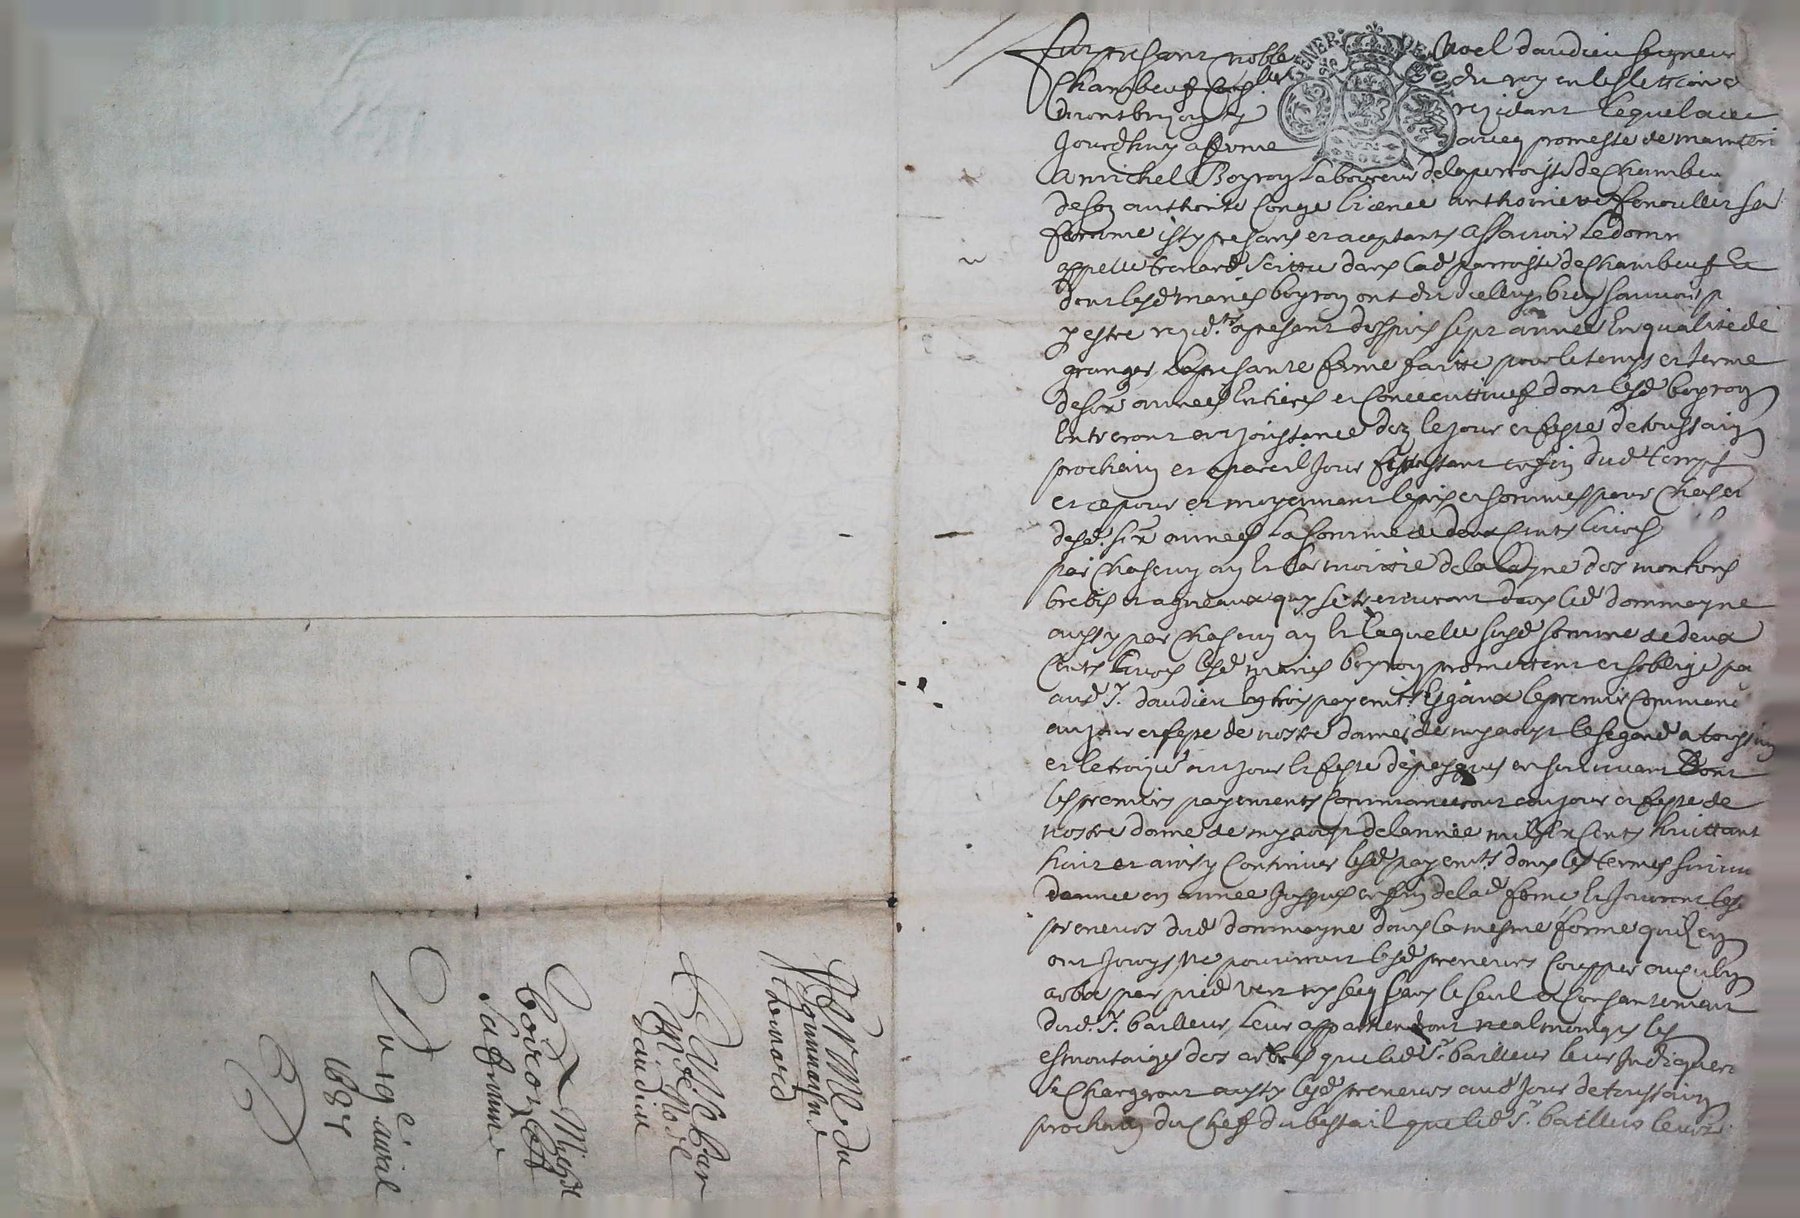 Fut presant noble Noel daudieu seigneur
Chambeuf Con.er du roy en leslection d
montbrison y rezidant lequel a ce
jourdhuy afferme avecq promesse de mainteni
a michel Boyron laboureur de la parroisse de Chambeu
de soy authorite conge licence anthoinette fenouller sa
femme isy presans et aceptants assavoir le dom
appelle trenard scittue dans lad parroisse de Chambeuf et
dont lesd maries boyron ont dit icelluy bien savoir p
y estre rezid.ts apresant dhepuis sept annee en qualite de
granger la presante ferme faitte pour le temps et terme
de six annees entieres et consecuttives dont lesd boyron
entreront en joissance dez le jour et feste de toussain
prochain et a pareil jour finissant en fin dud temps
et ce pour et moyennant le pris et sommes pour chascu
desd. six annees la somme de deux cents livres
par chascun an et la moittie de la layne des moutons
brebis et agneaux quy se treuveront dans led dommayne
aussy par chascun an et laquelle susd somme de deux
cents livres lesd maries boyron promettent et soblige pa
aud S.r daudieu en trois payemts esgaux le premier commenc
au jour et feste de nostre dame de my aoust le segond a toussain
et le troiziesme au jour et feste de pasques ensuivant dont
les premiers payements commanceront au jour et feste de
nostre dame de my aoust de lannee mil six cents huittant
huit et ainsy continuer lesd payemts dans les termes suivan
dannee en annee jusques en fin de lad ferme et jouiront les
preneurs dud dommayne dans la mesme forme quilz en
ont jouys ne pourront lesd preneurs coupper aucung
arbre par pied vert ny secq sans le seul et consantement
dud. S.r bailleur leur appartiendront neanmoings les
esmontaiges des arbres que led S.r bailleur leur indiquera
se chargeront aussy lesd preneurs aud jour de toussain
prochain du chef du bestail que led S.r bailleur leur
Ferme du
dommayne
trenard
Passe par
M.r Noel
daudieu
A Michel
boiron et
sa femme
Du 19e avril
1687